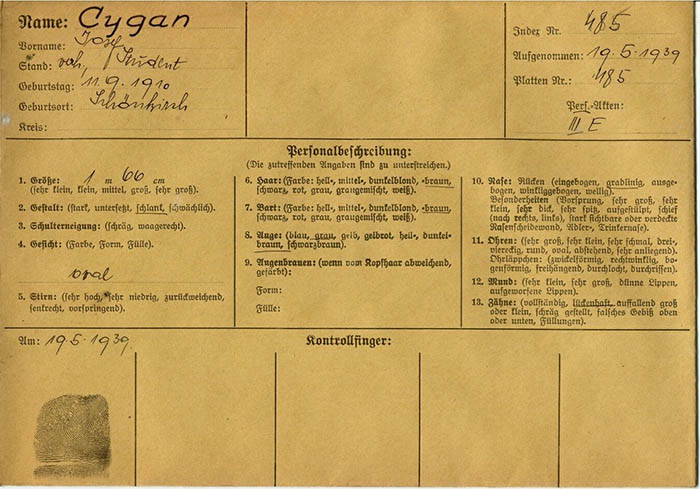 Name: Cygan
Vorname: Josef
Stand: Student
Geburtstag: 11.9.1910
Geburtsort:
Kreis:
Index Nr. 485
Aufgenommen: 19.5.1939
Platten Nr.: 485
Pers.-Akten:
III E
Personalbeschreibung:
(Die zutreffenden Angaben sind zu unterstreichen.)
1. Größe: 1 m 66 cm
(sehr klein, klein, mittel, groß, sehr groß).
2. Gestalt: (stark, untersetzt, schlank, schwächlich).
3. Schulterneigung: (schräg, waagerecht).
4. Gesicht: (Farbe, Form, Fülle).
oval
5. Stirn: (sehr hoch, sehr niedrig, zurückweichend,
senkrecht, vorspringend).
6. Haar: (Farbe: hell-, mittel-, dunkelblond, -braun,
schwarz, rot, grau, graugemischt, weiß).
7. Bart: (Farbe: hell-, mittel-, dunkelblond, -braun,
schwarz, rot, grau, graugemischt, weiß).
8. Auge: (blau, grau, gelb, gelbrot, hell-, dunkel-
braun, schwarzbraun).
9. Augenbrauen: (wenn vom Kopfhaar abweichend,
gefärbt):
Form:
Fülle:
10. Nase: Rücken (eingebogen, gradlinig, ausge-
bogen, winkliggebogen, wellig).
Besonderheiten (Vorsprung, sehr groß, sehr
klein, sehr dick, sehr spitz, aufgestülpt, schief
(nach rechts, links), stark sichtbare oder verdeckte
Nasenscheidewand, Adler-, Trinkernase).
11. Ohren: (sehr groß, sehr klein, sehr schmal, drei-,
viereckig, rund, oval, abstehend, sehr anliegend).
Ohrläppchen: (zwickelförmig, rechtwinklig, bo-
genförmig, freihängend, durchlocht, durchrissen).
12. Mund: (sehr klein, sehr groß, dünne Lippen,
aufgeworfene Lippen).
13. Zähne: (vollständig, lückenhaft, auffallend groß
oder klein, schräg gestellt, falsches Gebiß oben
oder unten, Füllungen).
Am: 19.5.1939.
Kontrollfinger: